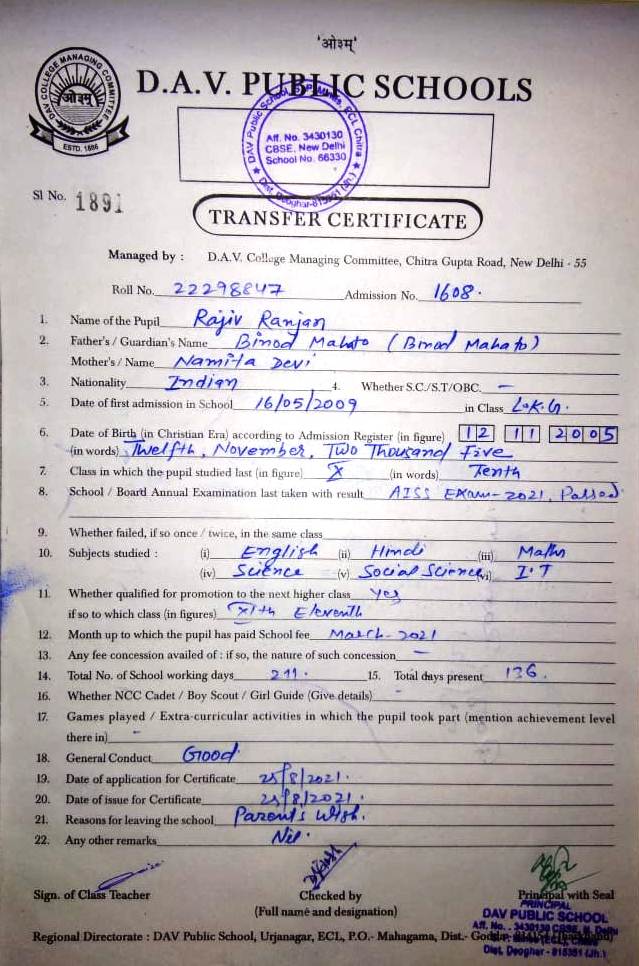 'ओ३म्'
DAV COLLEGE MANAGING COMMITTEE
ओ३म्
ESTD. 1886
D.A.V. PUBLIC SCHOOLS
DAV Public School, S.P. Mines, ECL Chitra
Aff. No. 3430130
CBSE, New Delhi
School No. 66330
Dist. Deoghar-815351 (Jh.)
Sl No. 1891
TRANSFER CERTIFICATE
Managed by : D.A.V. College Managing Committee, Chitra Gupta Road, New Delhi - 55
Roll No. 22298847 Admission No. 1608.
1. Name of the Pupil Rajiv Ranjan
2. Father's / Guardian's Name Binod Mahato (Binod Mahato)
Mother's / Name Namita Devi
3. Nationality Indian 4. Whether S.C./S.T/OBC. –
5. Date of first admission in School 16/05/2009 in Class L.K.G.
6. Date of Birth (in Christian Era) according to Admission Register (in figure) 12 11 2005
(in words) Twelfth, November, Two Thousand Five
7. Class in which the pupil studied last (in figure) X (in words) Tenth
8. School / Board Annual Examination last taken with result AISS Exam-2021, Passed
9. Whether failed, if so once / twice, in the same class
10. Subjects studied : (i) English (ii) Hindi (iii) Maths
(iv) Science (v) Social Science (vi) I.T
11. Whether qualified for promotion to the next higher class Yes
if so to which class (in figures) XIth Eleventh
12. Month up to which the pupil has paid School fee March-2021
13. Any fee concession availed of : if so, the nature of such concession –
14. Total No. of School working days 211. 15. Total days present 136.
16. Whether NCC Cadet / Boy Scout / Girl Guide (Give details) –
17. Games played / Extra-curricular activities in which the pupil took part (mention achievement level
there in) –
18. General Conduct Good.
19. Date of application for Certificate 25/8/2021.
20. Date of issue for Certificate 25/8/2021.
21. Reasons for leaving the school Parent's Wish.
22. Any other remarks Nil.
Sign. of Class Teacher Checked by Principal with Seal
(Full name and designation)
PRINCIPAL
DAV PUBLIC SCHOOL
Aff. No. . 3430130 CBSE, N. Delhi
Regional Directorate : DAV Public School, Urjanagar, ECL, P.O.- Mahagama, Dist.- Godda-
Dist. Deoghar - 815351 (Jh.)